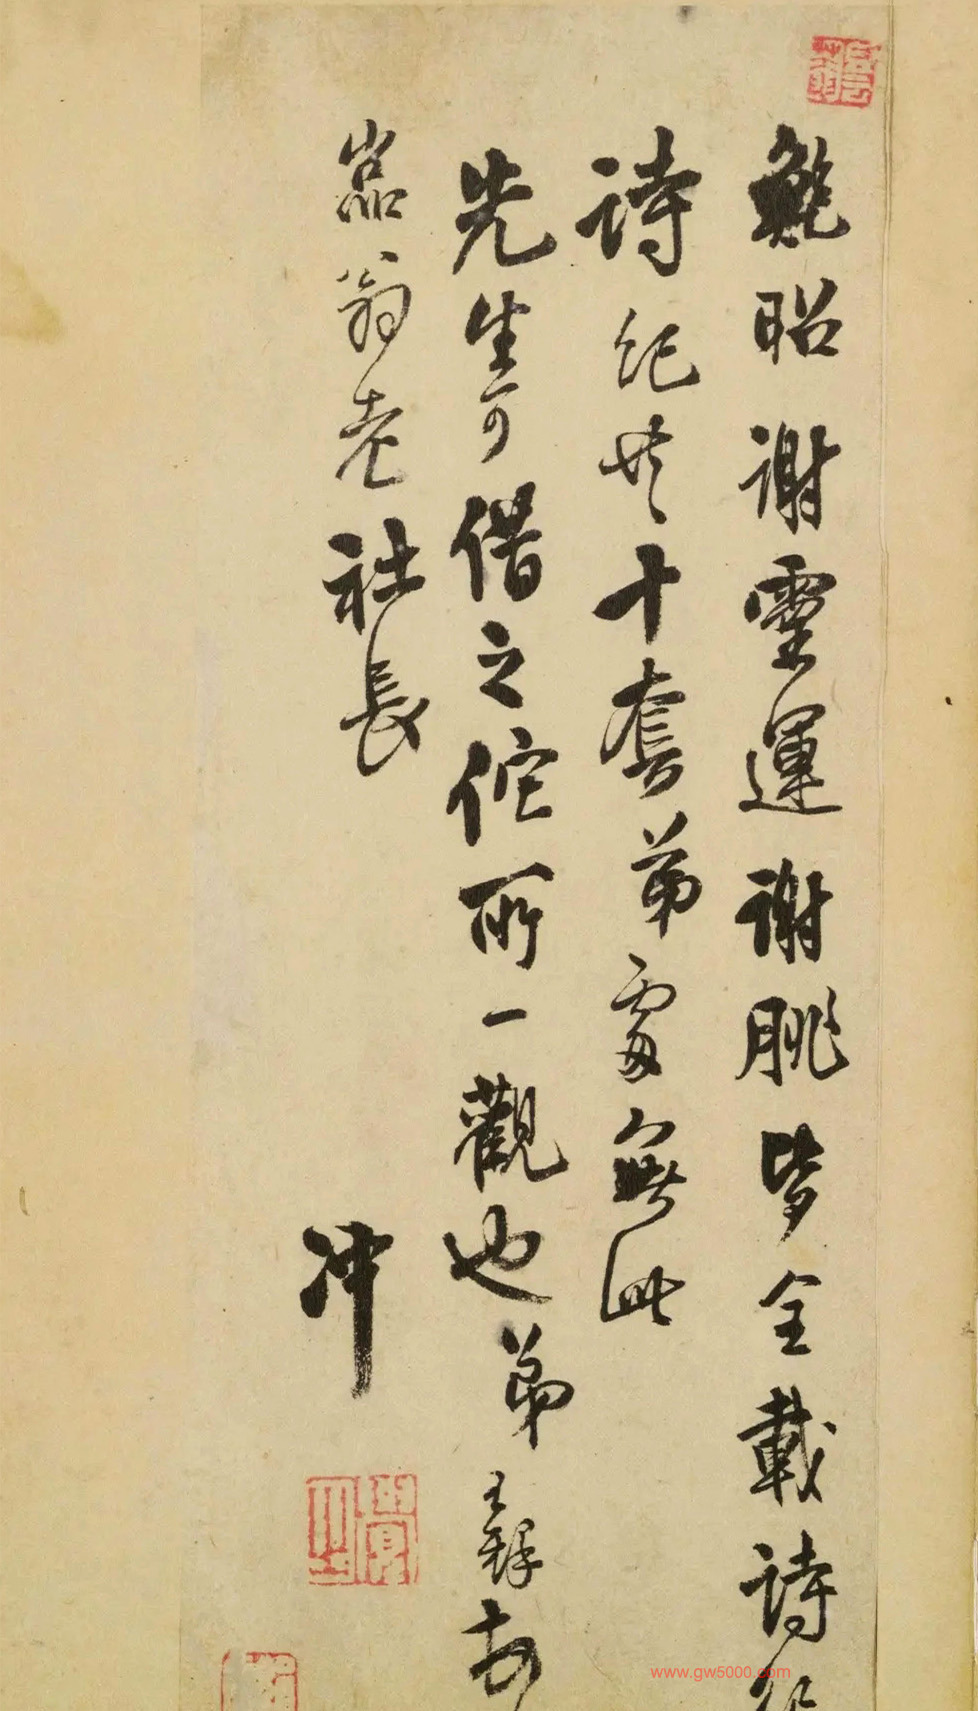 鮑昭謝靈運謝朓皆全載詩紀
詩紀共十套弟處無此
先生可借之佗所一觀也弟王鐸頓
嵓翁老社長
冲
www.gw5000.com